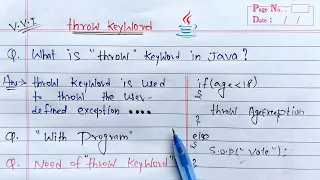 V.V.I
throw keyword
Java
Page No.:
Date: / /
Q. What is "throw" keyword in Java?
Ans:- throw keyword is used
to throw the user-
defined exception ....
Q. "With Program"
Q. Need of "throw keyword"
if(age<18)
{
throw AgeException
}
else
{
S.o.p("Vote");
}